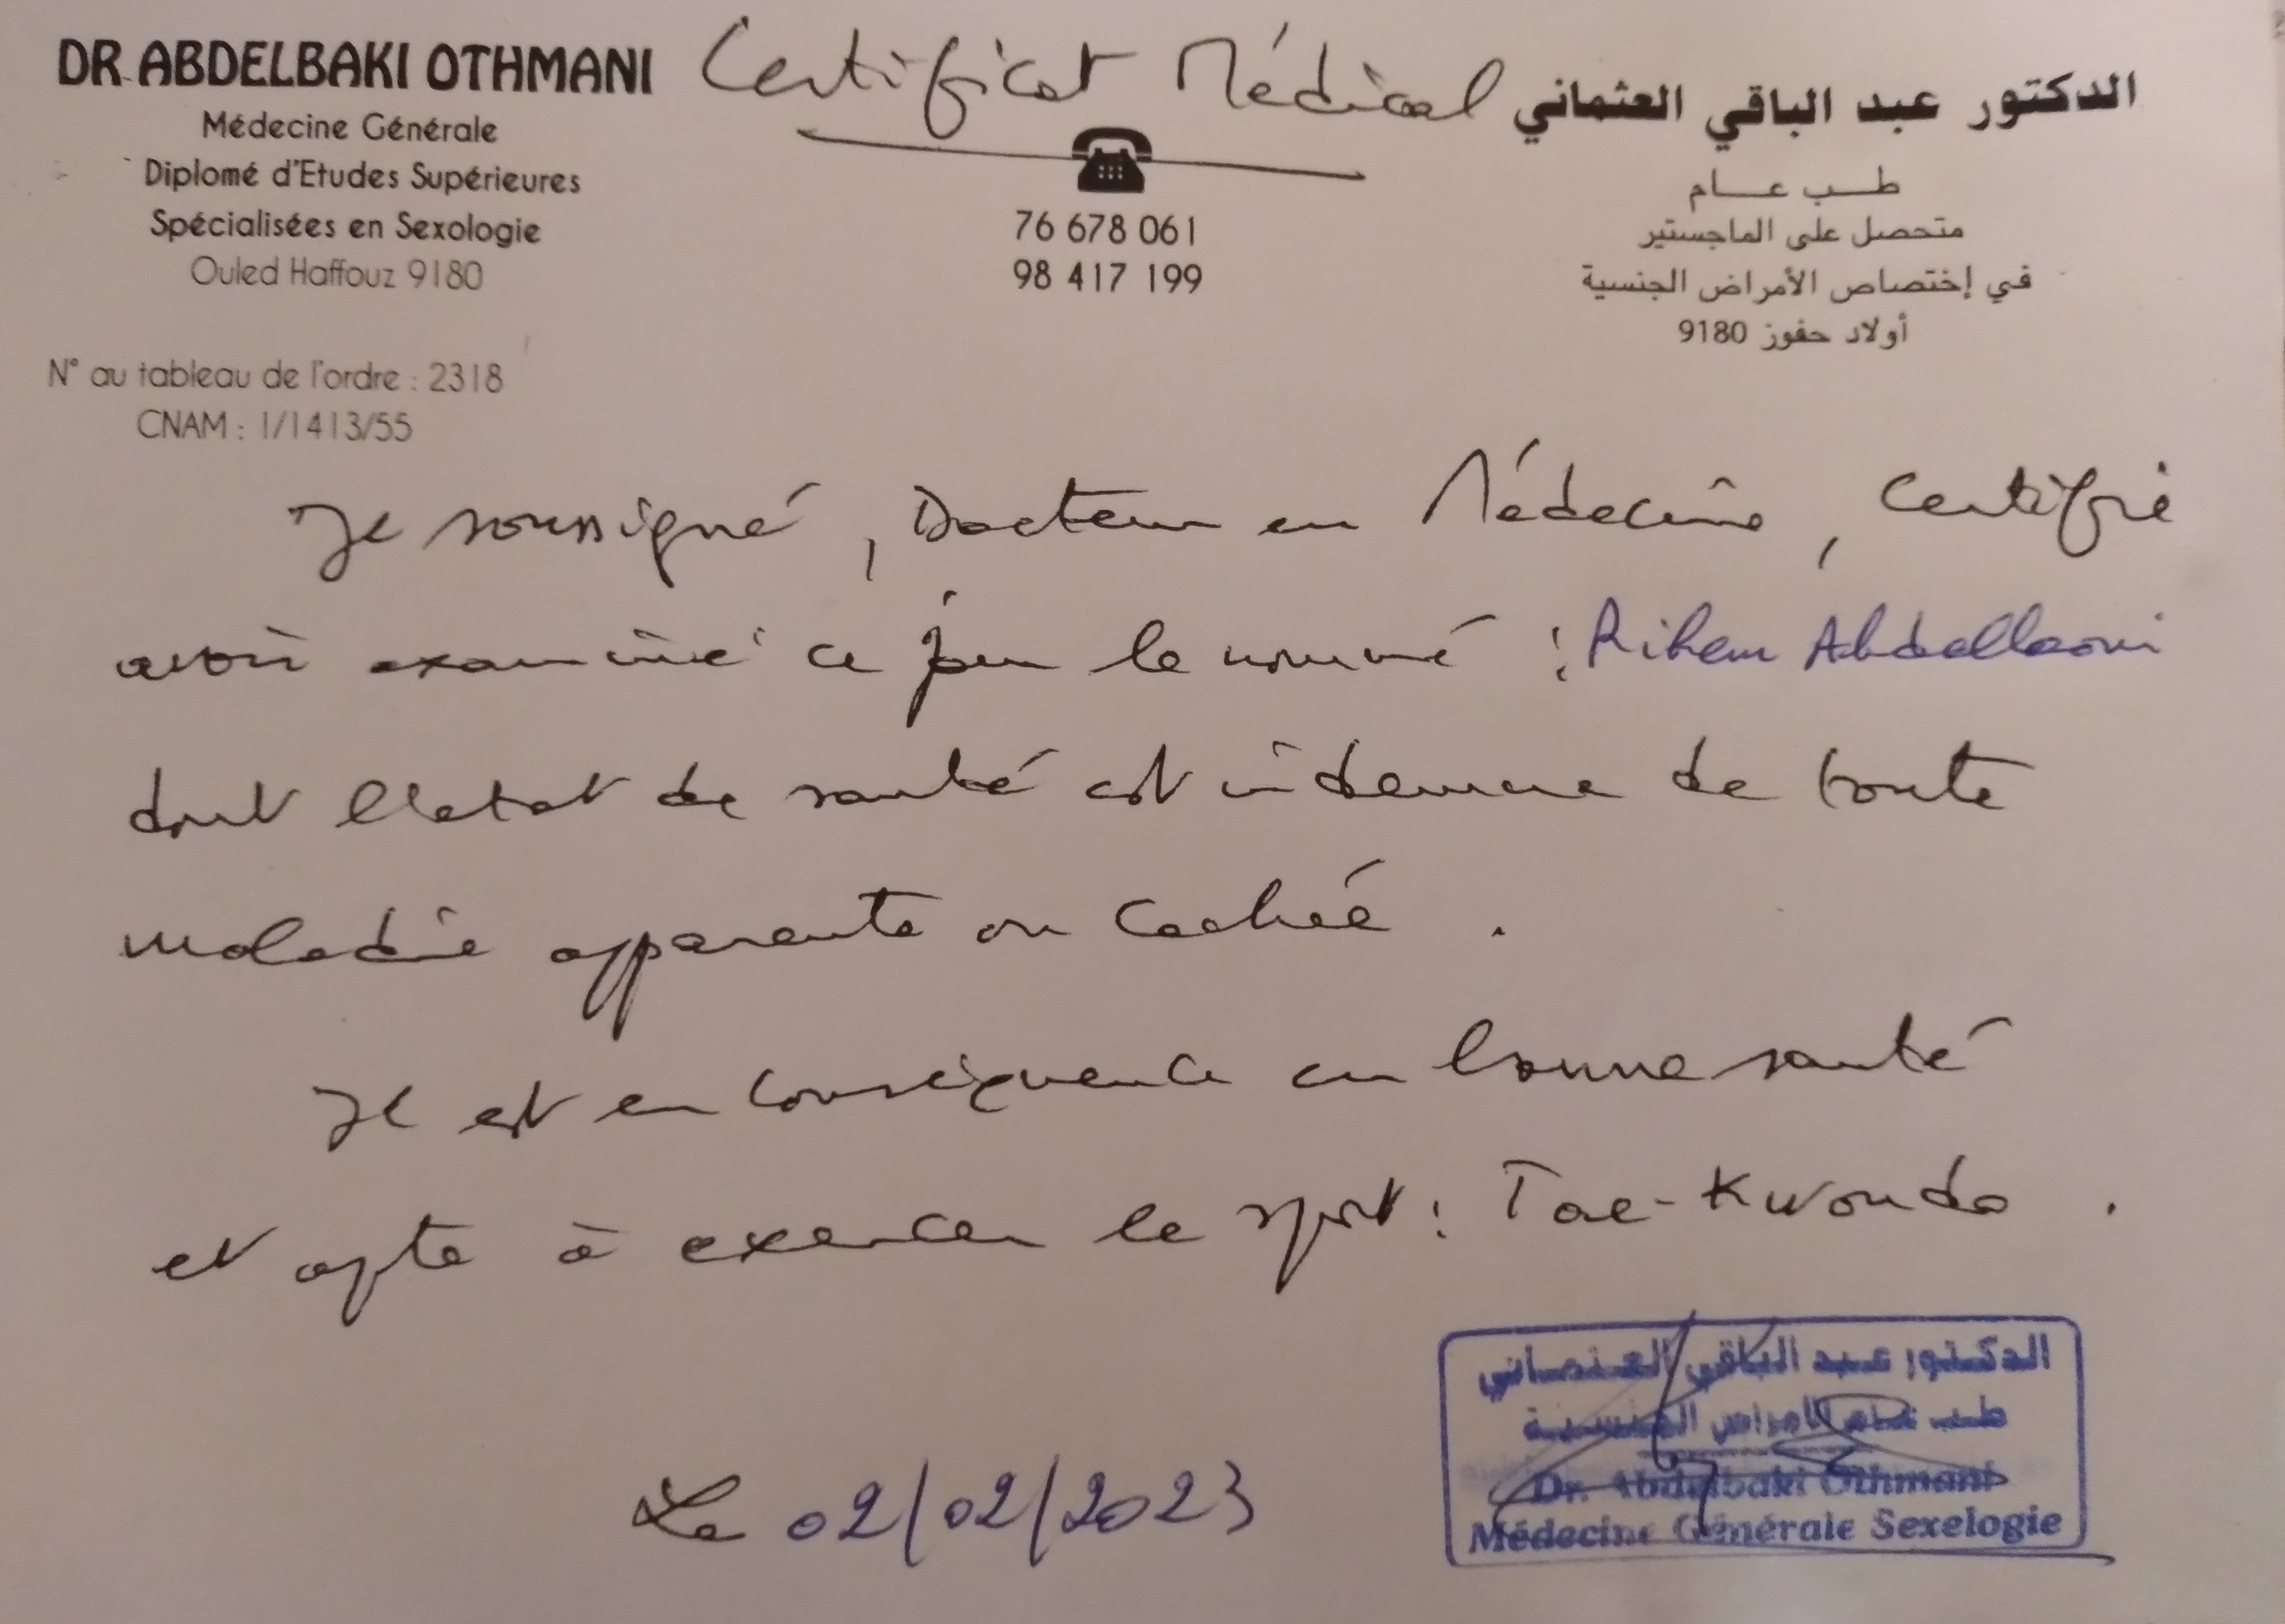 DR ABDELBAKI OTHMANI
Médecine Générale
Diplomé d'Etudes Supérieures
Spécialisées en Sexologie
Ouled Haffouz 9180
N° au tableau de l'ordre : 2318
CNAM : 1/1413/55
Certificat Médical
76 678 061
98 417 199
الدكتور عبد الباقي العثماني
طب عام
متحصل على الماجستير
في إختصاص الأمراض الجنسية
أولاد حفوز 9180
Je soussigné, Docteur en Médecine, Certifie
avoir examiné ce jour le nommé : Rihem Abdellaoui
dont l'etat de santé est indemne de toute
maladie apparente ou cachée .
Il est en conséquence en bonne santé
et apte à exercer le sport : Tae-Kwondo .
Le 02/02/2023
الدكتور عبد الباقي العثماني
طب عام الأمراض الجنسية
Dr. Abdelbaki Othmani
Médecine Générale Sexelogie